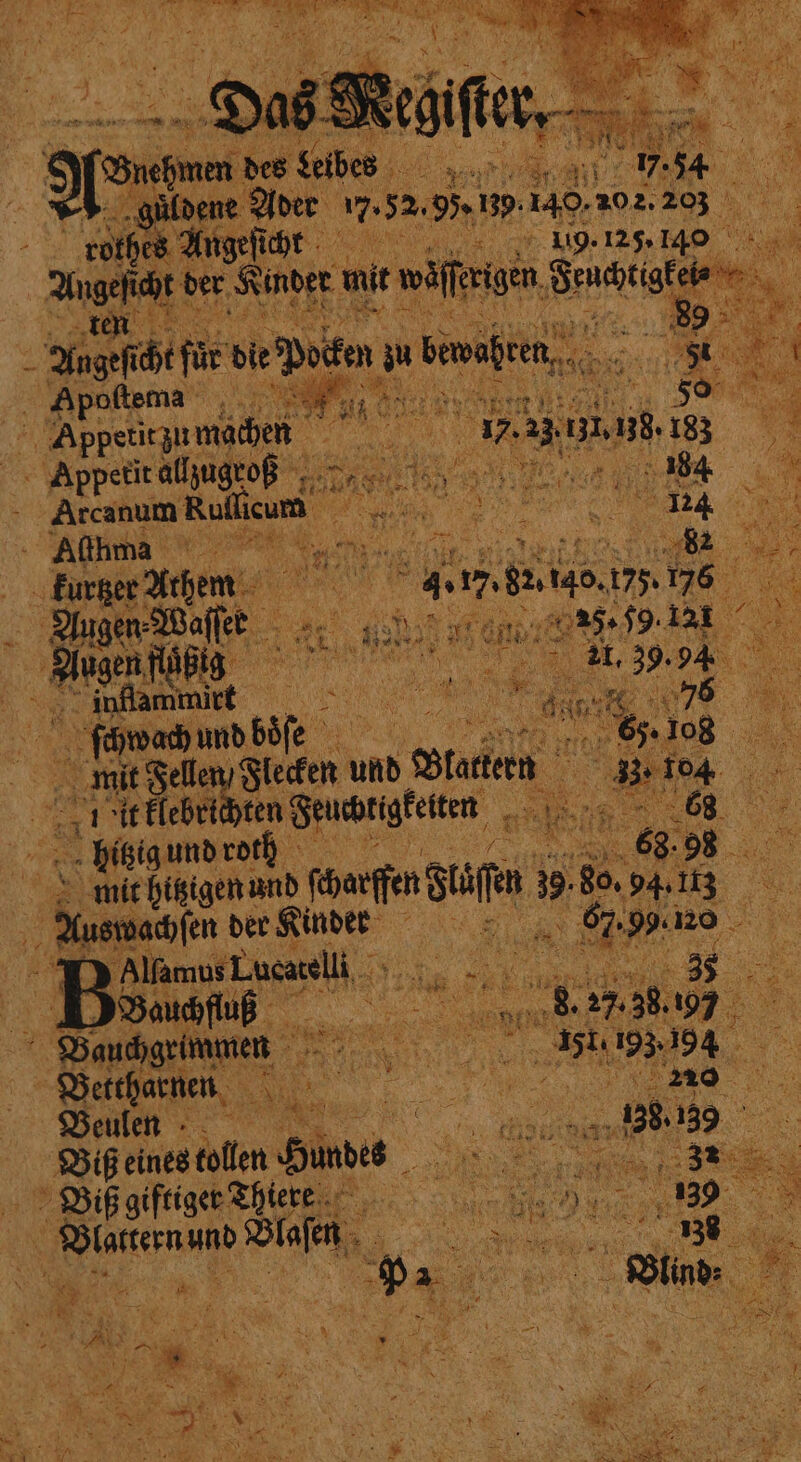 Das Regiſter.
ABnehmen des Leibes 17. 54
guͤldene Ader 17. 52. 95. 139. 140. 202. 203
rothes Angeſicht 119. 125. 140
Angeſicht der Kinder mit waͤſſerigen Feuchtigkei⸗
ten 89
Angeſicht fuͤr die Pocken zu bewahren, 51
Apoſtema 50
Appetit zu machen 17. 23. 131. 138. 183
Appetit allzugroß 184
Arcanum Ruſſicum 124
Aſthma 82
kurtzer Athem 4. 17. 82. 140. 175. 176
Augen⸗Waſſer 25. 59. 121
Augen fluͤßig 21. 39. 94
inflammirt 76
ſchwach und boͤſe 65. 108
mit Fellen / Flecken und Blattern 33. 104
it klebrichten Feuchtigkeiten 68
hitzig und roth 68. 98
mit hitzigen und ſcharffen Fluͤſſen 39. 80. 94. 113
Auswachſen der Kinder 67. 99. 120
BAlſamus Lucatelli 35
Bauchfluß 8. 27. 38. 197
Bauchgrimmen 151. 193. 194
Bettharnen 220
Beulen 138. 139
Biß eines tollen Hundes 32
Biß giftiger Thiere 139
Blattern und Blaſen 138
P 2 Blind⸗